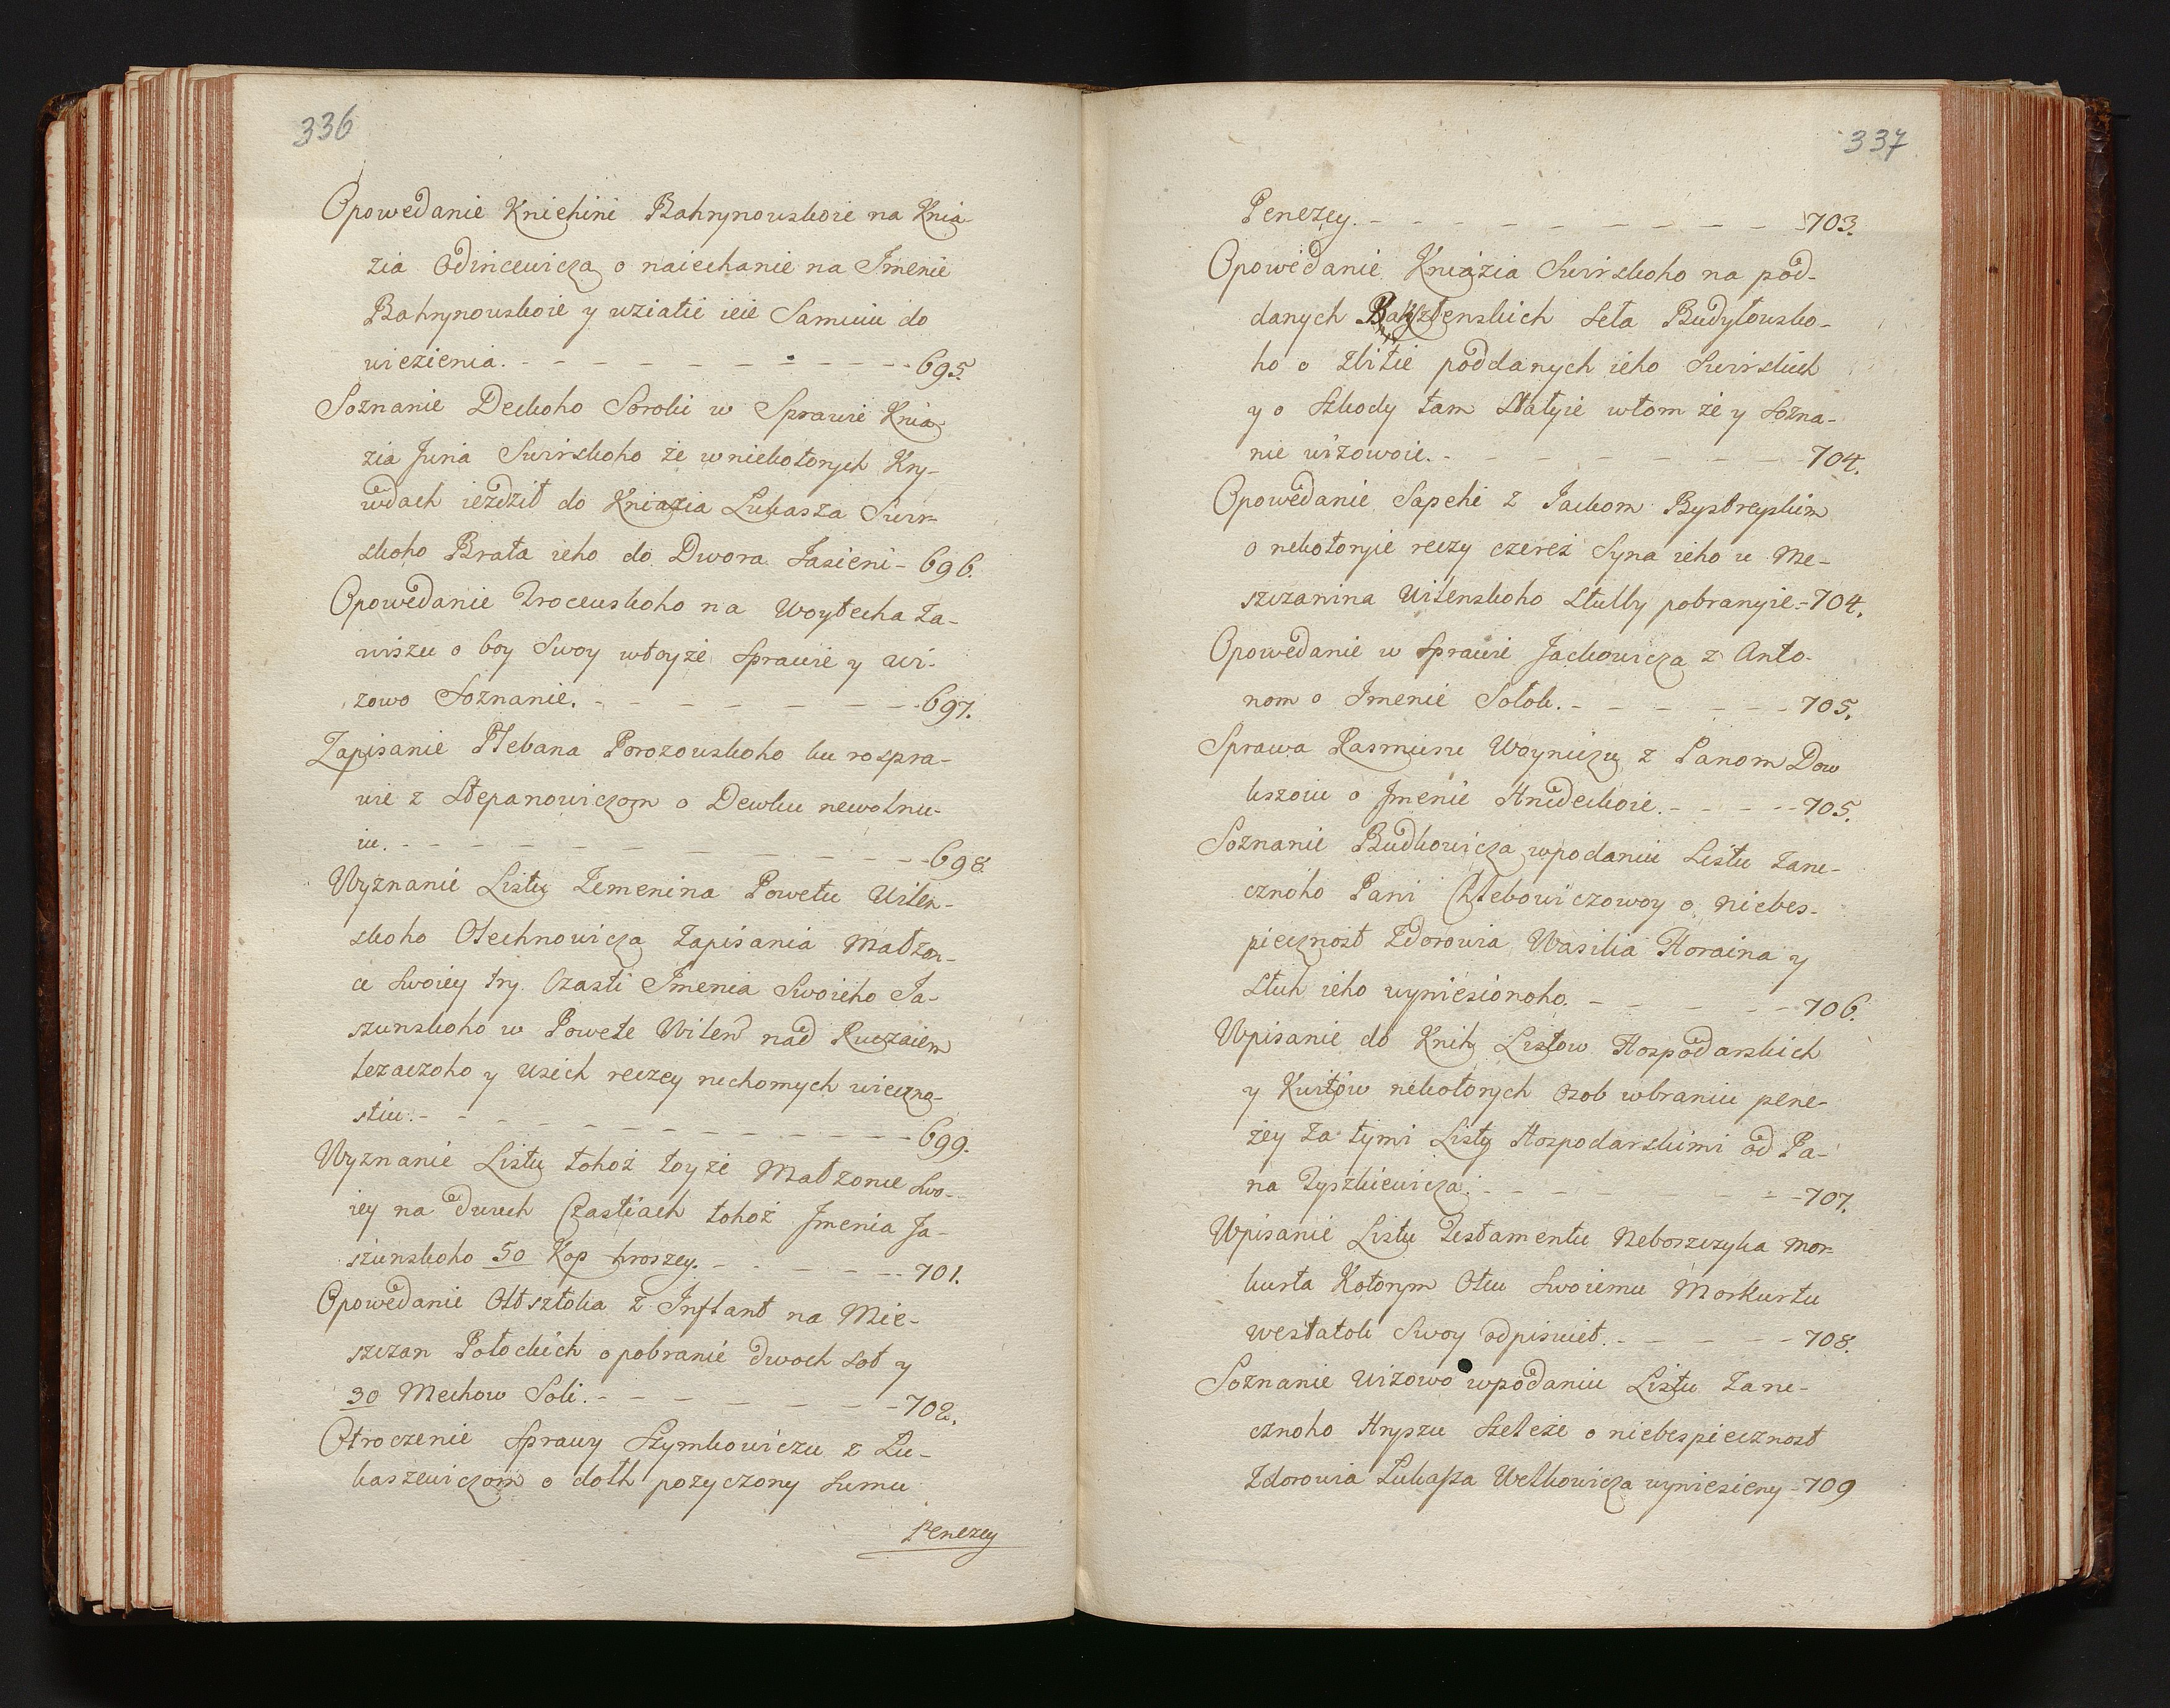 336
Opowedanie Kniehini Bahrynouskoie na Knia-
zia Odincewicza o naiechanie na Imenie
Bahrynouskoie y uziatie ieie Samuiu do
wiezienia. - - - - - - - - - - 695.
Soznanie Deckoho Soroki w Sprawie Knia
zia Juria Swirskoho że w niekotorych Kry-
wdach iezdził do Kniazia Lukasza Swir-
skoho Brata ieho do Dwora Jasieni - 696.
Opowedanie Troceuskoho na Woytecha Za-
wiszu o boy Swoy wtoyże Sprawie y Wi-
zowo Soznanie. - - - - - - - - 697.
Zapisanie Plebana Porozouskoho ku rospra-
wie z Stepanowiczom o Dewku newolnu-
iu. - - - - - - - - - - - - 698.
Wyznanie Listu Zemenina Powetu Wilen-
skoho Olechnowicza Zapisania Małżon-
ce Swoiey try Czasti Imenia Swoieho Ja-
szunskoho w Powete Wilen nad Ruczaiem
lezaczoho y Usich reczey ruchomych wieczno-
stiu. - - - - - - - - - - - 699.
Wyznanie Listu tohoż toyże Małżonce Swo-
iey na dwuch Czastiach tohoż Jmenia Ja-
szunskoho 50 Kop hroszey. - - - - - 701.
Opowedanie Oltsztolia z Inflant na Mie-
szczan Połockich o pobranie dwoch Sot y
30 Mechow Soli. - - - - - - - 702.
Otroczenie Sprawy Szymkowiczu z Lu-
kaszewiczom o dolh pozyczony Sumu
Penezey
337
Penezey. - - - - - - - - - 703.
Opowedanie Kniazia Swirskoho na pod-
danych Baksztenskich Seła Budyłousko-
ho o Zbitie poddanych ieho Swirskich
y o Szkody tam Stałyie wtom że y Sozna-
nie wiżowoie. - - - - - - - - 704.
Opowedanie Sapehi z Jackom Bystreyskim
o nekotoryie reczy czerez Syna ieho u Me-
szczanina Wilenskoho Stulby pobranyie. - 704.
Opowedanie w Sprawie Jackowicza z Anto-
nom o Imenie Sołok. - - - - - - 705.
Sprawa Rasmusu Woyniczu z Panom Dow
kszoiu o Jmenie Hnideckoie. - - - - 705.
Soznanie Budkowicza wpodaniu Listu Zaru-
cznoho Pani Chlebowiczowoy o niebes-
pieeznost Zdorowia Wasilia Horaina y
Sluh ieho wyniesionoho. - - - - - 706.
Wpisanie do Knih Listow Hospodarskich
y Kwitow nekotorych Osob wbraniu pene-
zey za tymi Listy Hospodarskimi od Pa-
na Tyszkiewicza. - - - - - - - 707.
Wpisanie Listu Testamentu Neboszczyka Mor-
kurta Kotorym Otcu Swoiemu Morkurtu
westatok Swoy odpisuiet. - - - - - 708.
Soznanie Wizowo wpodaniu Listu Zaru-
cznoho Hryszu Szeleże o niebespiecznost
Zdorowia Lukasza Wełkowicza wyniesieny - 709